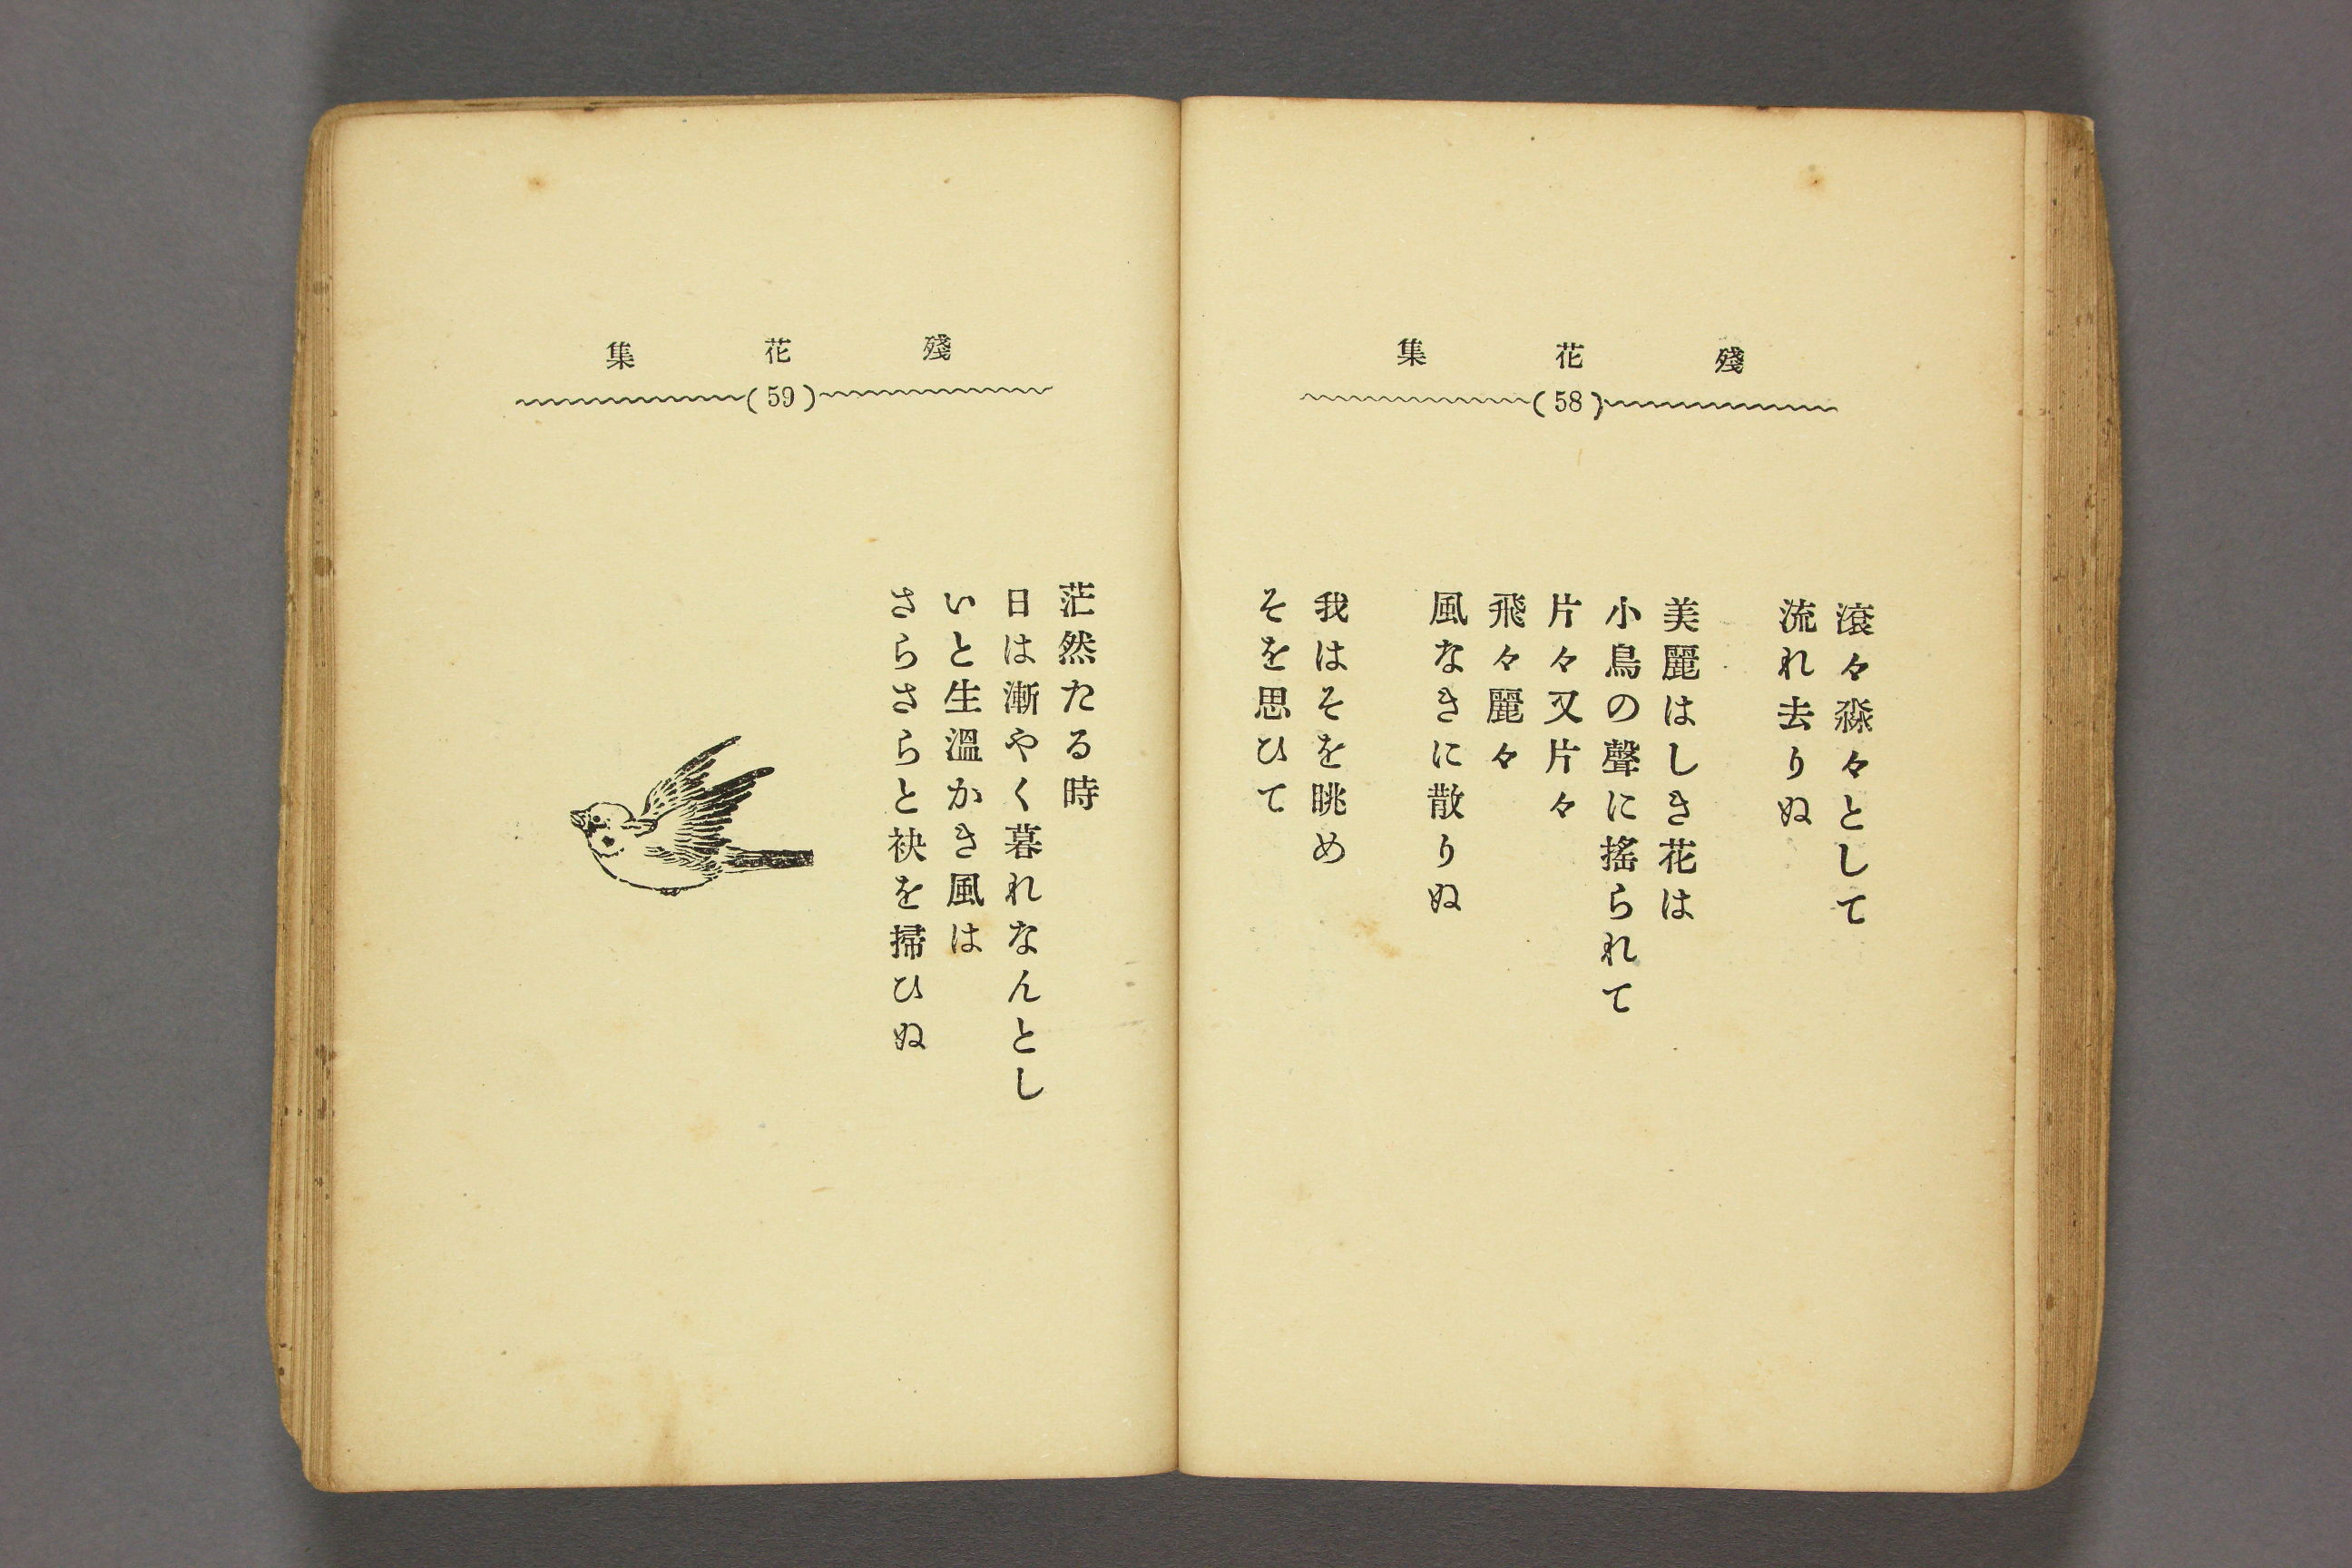 殘花集
(58)
滾々淼々として
流れ去りぬ
美麗はしき花は
小鳥の聲に搖られて
片々又片々
飛々麗々
風なきに散りぬ
我はそを眺め
そを思ひて
殘花集
(59)
茫然たる時
日は漸やく暮れなんとし
いと生溫かき風は
さらさらと袂を掃ひぬ